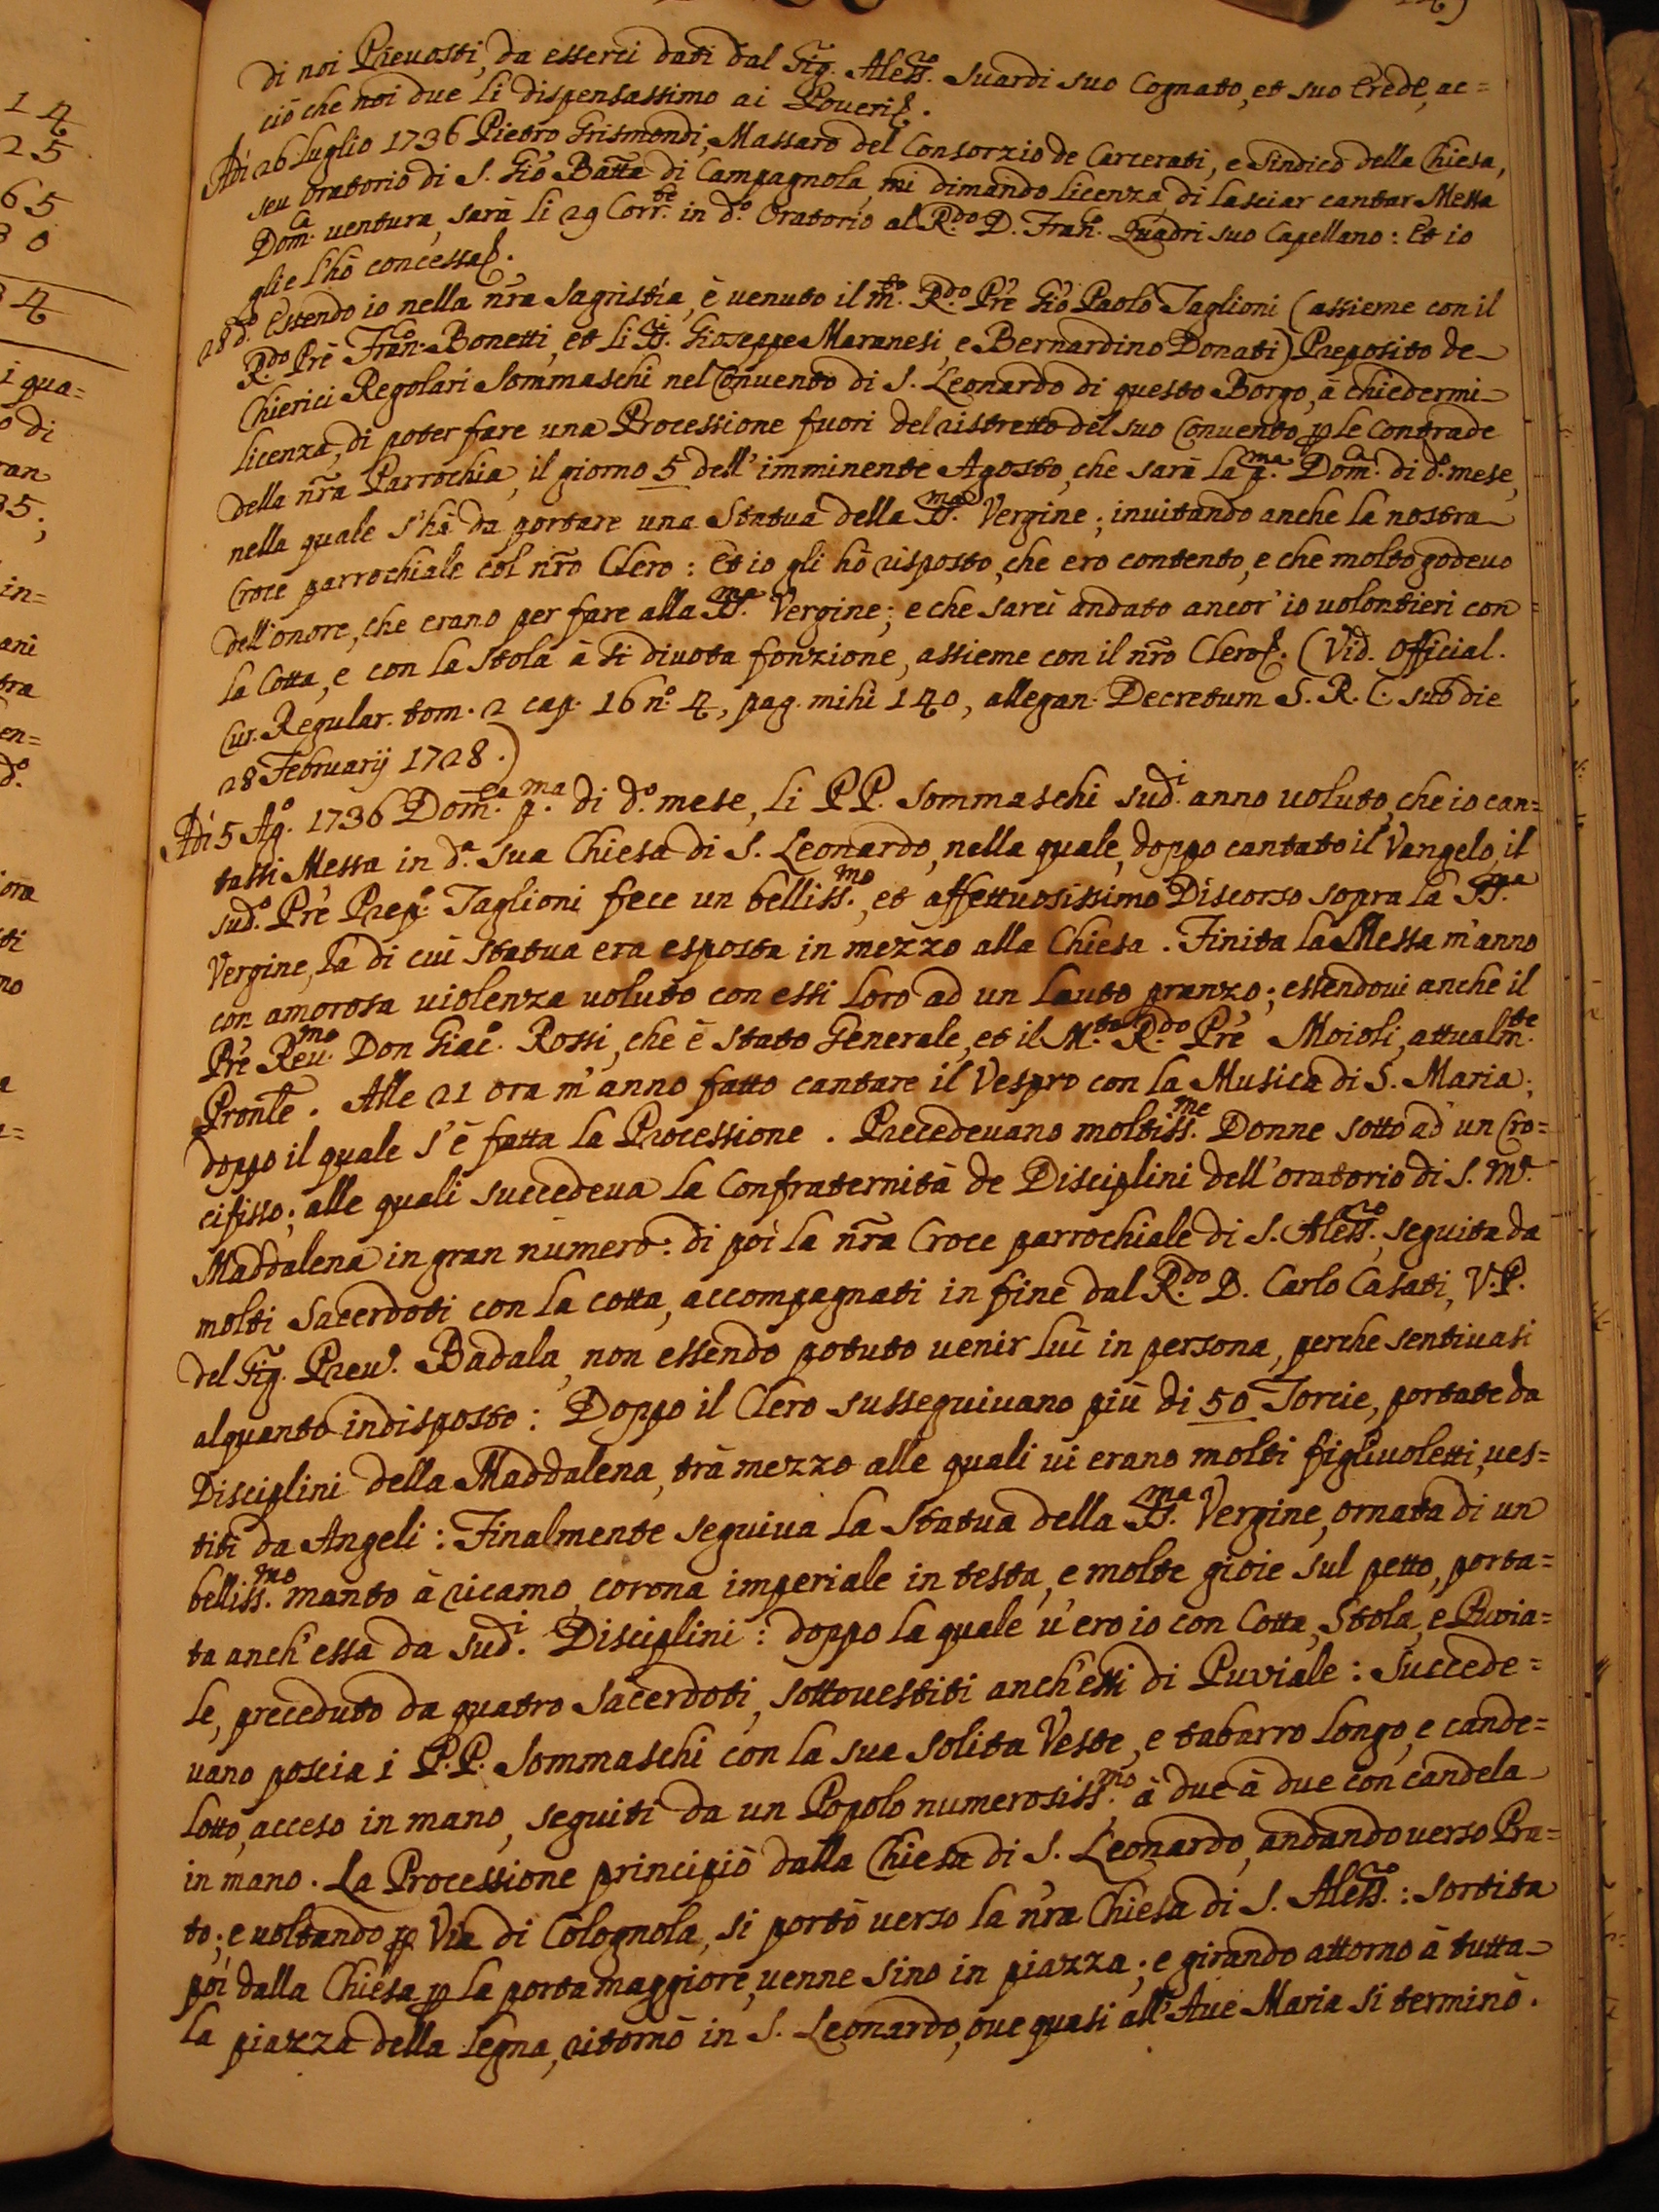 di noi Prevosti, da esserci dati dal Sig. Aless.o Suardi suo Cognato, et suo Erede, ac=
ciò che noi due li dispensassimo ai Poveri.
Adì 26 Luglio 1736 Pietro Grismondi, Massaro del Consorzio de Carcerati, e Sindico della Chiesa,
seu Oratorio di S. Gio Batta di Campagnola, mi dimandò licenza di lasciar cantar Messa
Dom.ca ventura, sarà li 29 Corr.te in d.o Oratorio al R.do D. Fran.co Quadri suo Capellano: Et io
glie l'hò concessa.
28 d.o Essendo io nella nrã Sagristia, è venuto il m.to R.do Prẽ Gio Paolo Taglioni (assieme con il
R.do Prẽ Fran.co Bonetti, et li SS.i Gioseppe Maranesi, e Bernardino Donati) Preposito de
Chierici Regolari Sommaschi nel Convento di S. Leonardo di questo Borgo, à chiedermi
licenza, di poter fare una Processione fuori del ristretto del suo Convento p le Contrade
della nrã Parrochia, il giorno 5 dell'imminente Agosto, che sarà la p.ma Dom.ca di d.o mese,
nella quale s'hà da portare una Statua della SS.ma Vergine; invitando anche la nostra
Croce parrochiale col nrõ Clero: Et io gli hò risposto, che ero contento, e che molto godevo
dell'onore, che erano per fare alla SS.ma Vergine; e che sarei andato ancor'io volontieri con
la Cotta, e con la Stola à sì divota fonzione, assieme con il nrõ Clero. (Vid. Official.
Cur. Regular. tom. 2 cap. 16 n.o 4, pag. mihi 140, allegan. Decretum S. R. C. sub die
28 Februarij 1728.)
Adì 5 Ag.o 1736 Dom.ca p.ma di d.o mese, li PP. Sommaschi sud.i anno voluto, che io can=
tassi Messa in d.a sua Chiesa di S. Leonardo, nella quale, doppo cantato il Vangelo, il
sud.o Prẽ Prep.o Taglioni fece un belliss.mo, et affettuosissimo Discorso sopra la SS.ma
Vergine, la di cui Statua era esposta in mezzo alla Chiesa. Finita la Messa m'anno
con amorosa violenza voluto con essi Loro ad un lauto pranzo; essendovi anche il
Prẽ Rev.mo Don Giac.o Rossi, che è stato Generale, et il M.to R.do Prẽ Moioli, attualm.te
Pronle. Alle 21 ora m'anno fatto cantare il Vespro con la Musica di S. Maria;
doppo il quale s'è fatta la Processione. Precedevano moltiss.me Donne sotto ad un Cro=
cifisso; alle quali succedeva la Confraternità de Disciplini dell'oratorio di S. M.a
Maddalena in gran numero: di poi la nrã Croce parrochiale di S. Aless.o, seguita da
molti Sacerdoti con la cotta, accompagnati in fine dal R.do D. Carlo Casati, V. P.
del Sig. Prev.o Badala, non essendo potuto venir lui in persona, perche sentivasi
alquanto indisposto: Doppo il Clero susseguivano più di 50 Torcie, portate da
Disciplini della Maddalena, trà mezzo alle quali vi erano molti figliuoletti, ves=
titi da Angeli: Finalmente seguiva la Statua della SS.ma Vergine, ornata di un
belliss.mo manto à ricamo, corona imperiale in testa, e molte gioie sul petto, porta=
ta anch'essa da sud.i Disciplini: doppo la quale v'ero io con Cotta, Stola, e Pivia=
le, preceduto da quatro Sacerdoti, sottovestiti anch'essi di Puviale: Succede=
vano poscia i P.P. Sommaschi con la sua solita Veste, e tabarro longo, e cande=
lotto acceso in mano, seguiti da un Popolo numerosiss.mo à due à due con candela
in mano. La Processione principiò dalla Chiesa di S. Leonardo, andando verso Pra=
to; e voltando p Via di Colognola, si portò verso la nrã Chiesa di S. Aless.o: sortita
poi dalla Chiesa p la porta maggiore, venne sino in piazza; e girando attorno à tutta
la piazza della Legna, ritornò in S. Leonardo, ove quasi all'Ave Maria si terminò.